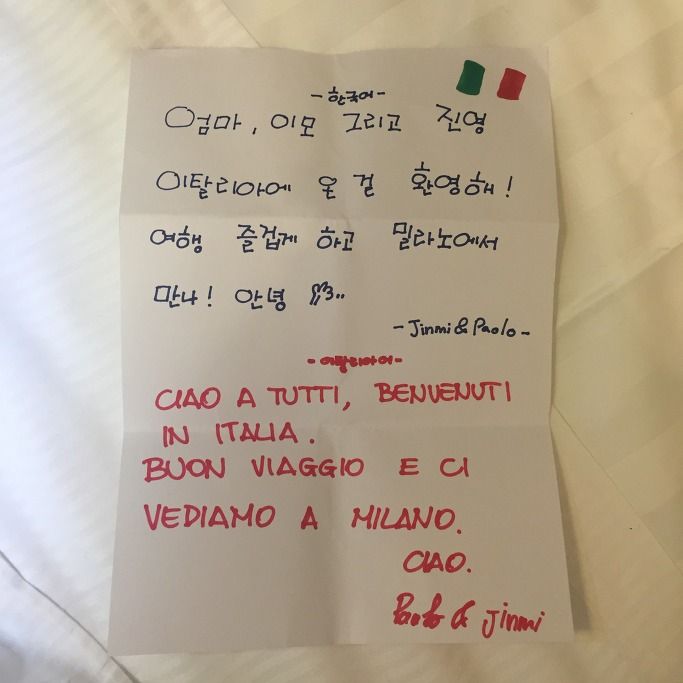 -한국어-
엄마, 이모 그리고 진영
이탈리아에 온 걸 환영해!
여행 즐겁게 하고 밀라노에서
만나! 안녕
-Jinmi & Paolo-
-이탈리아어-
CIAO A TUTTI, BENVENUTI
IN ITALIA.
BUON VIAGGIO E CI
VEDIAMO A MILANO.
CIAO.
Paolo & Jinmi